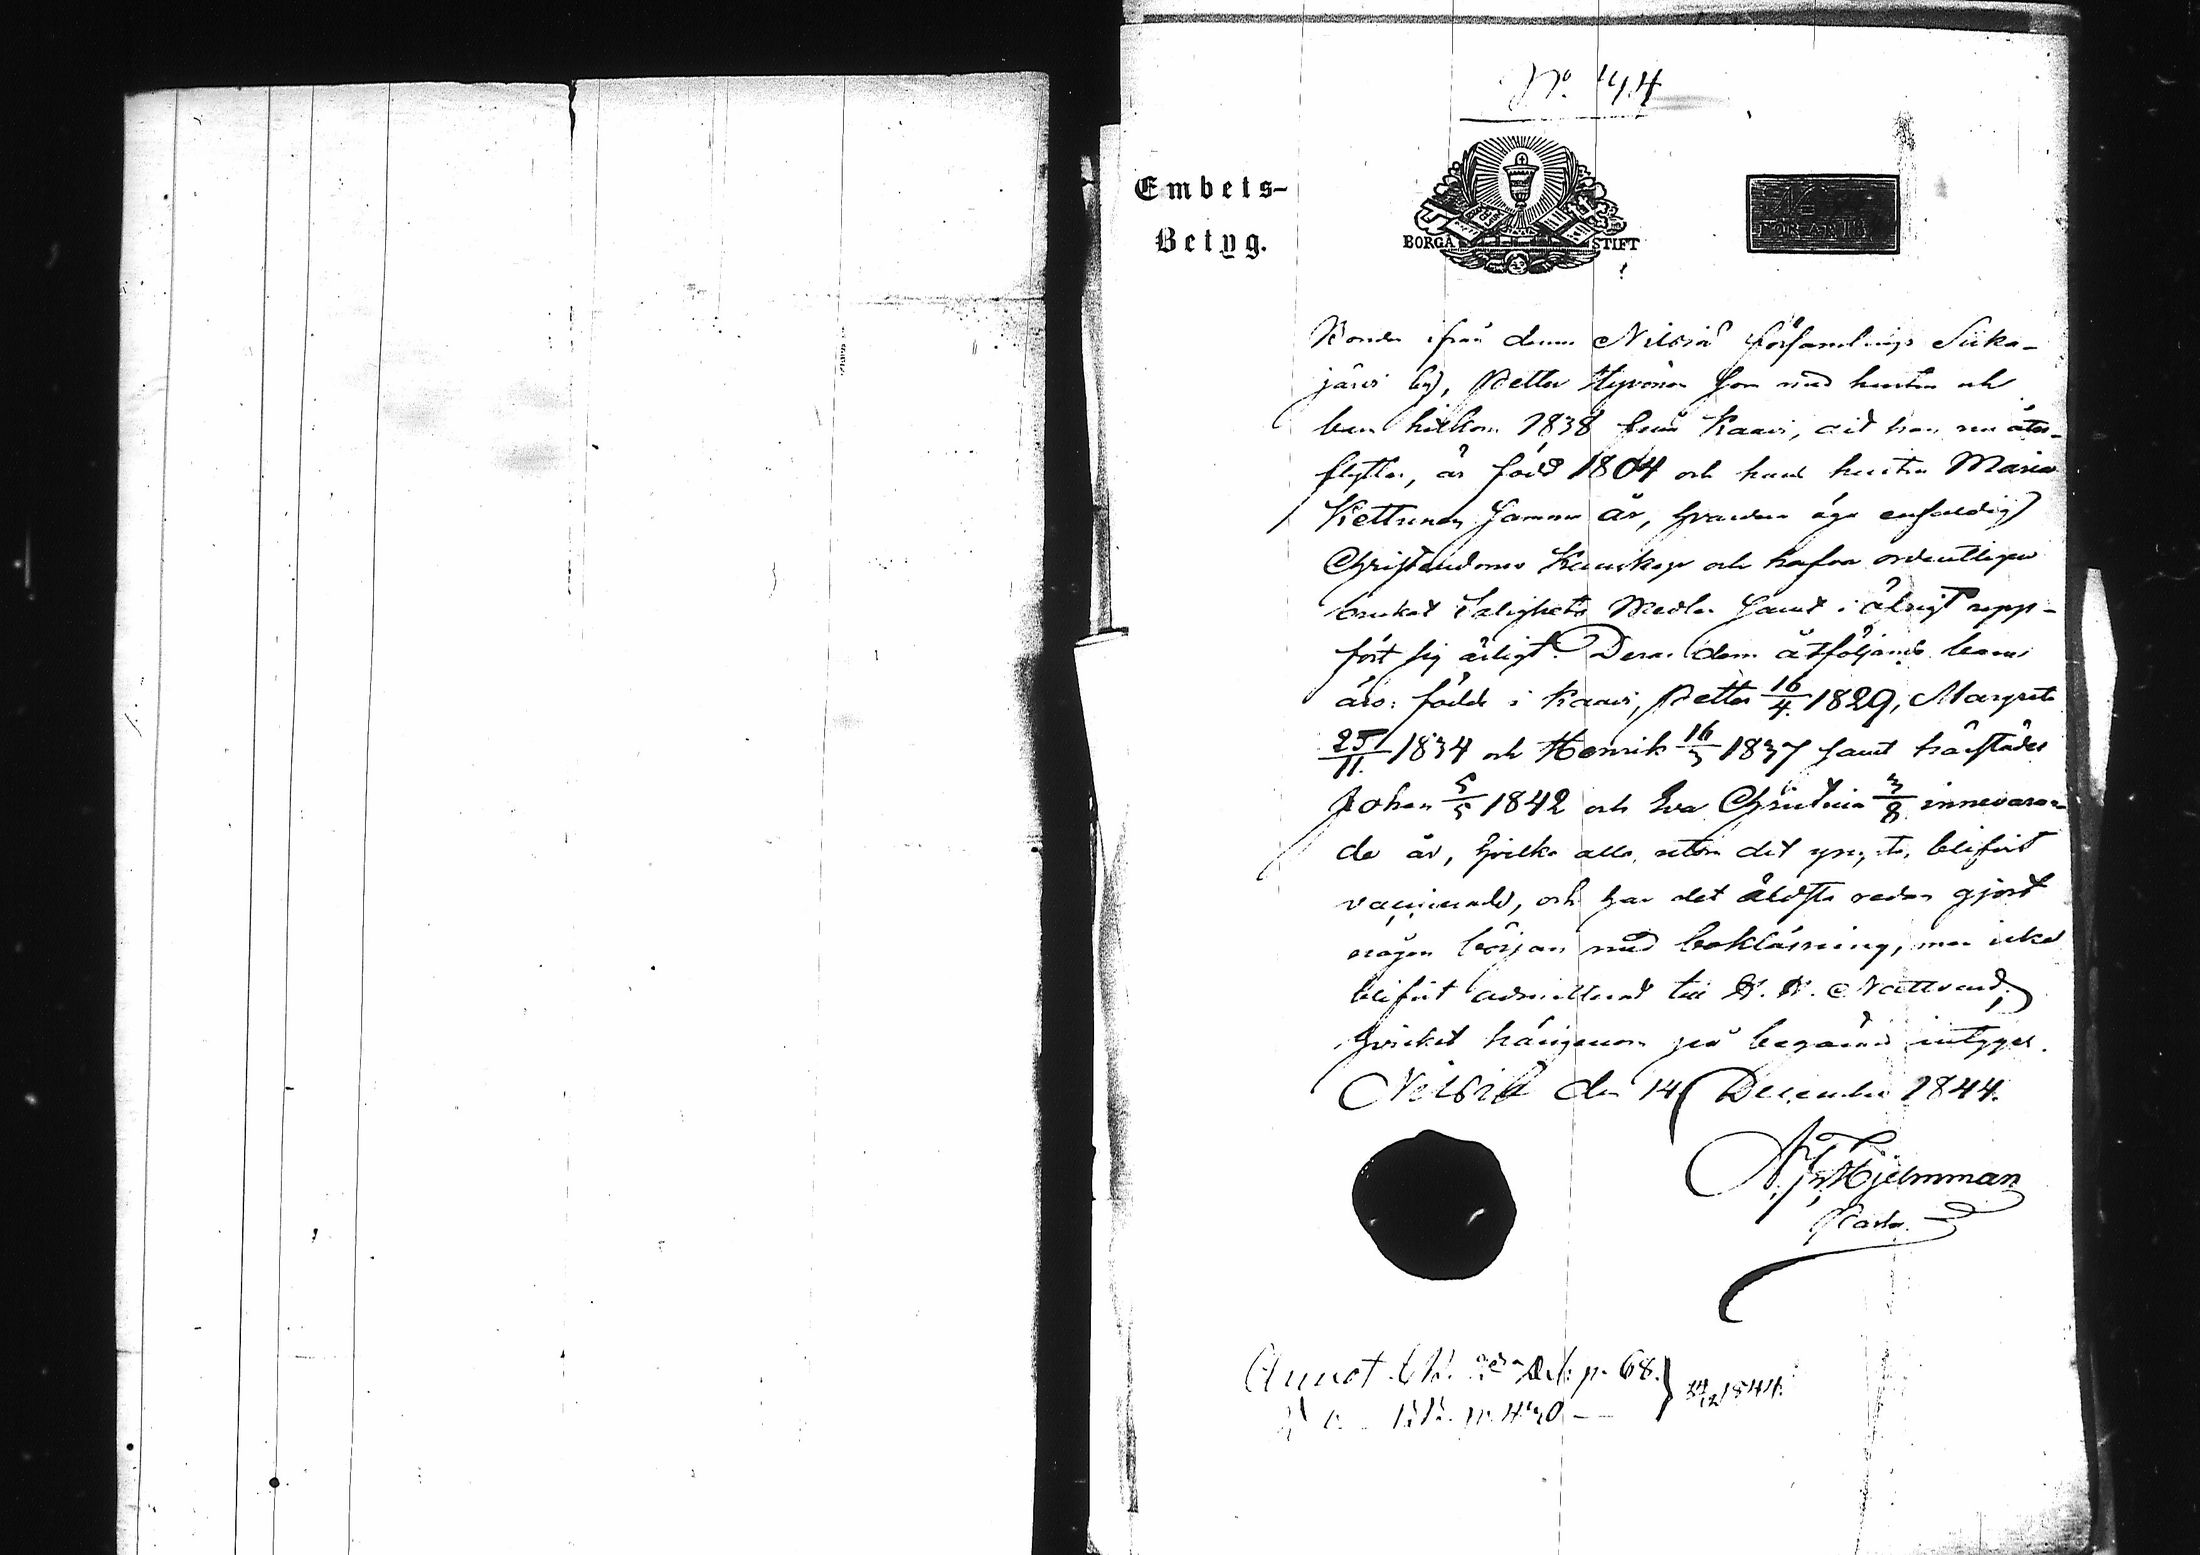 Nº 194
Embets-
Betyg.
BORGÅ STIFT
Bonden ifrån denna Nilsiä församlings Siika-
järvi by, Petter Hyvönen som med hustru och
barn hitkom 1838 från Kaavi, dit han nu åter-
flyttar, är född 1804 och hans hustru Maria
Kettunen samma år, hvardera äga enfaldig
Christendoms Kunskap och hafva ordentligen
brukat Salighets Medlen samt i öfrigt upp-
fört sig ärligt. Deras dem åtföljande barn
äro: födde i Kaavi, Petter 16/4 1829, Margreta
25/11 1834 och Henrik 16/3 1837 samt härstädes
Johan 5/5 1842 och Eva Christina 3/8 innevaran-
de år, hvilka alla, utom det yngsta, blifvit
vaccinerade, och har det äldsta redan gjort
någon början med bokläsning, men icke
blifvit admitterad till H. H. Nattvard,
hvilket härigenom på begäran intygas.
Nilsiä den 14 December 1844.
Hjelmman
Pastor
Annot. p. 68.
1844